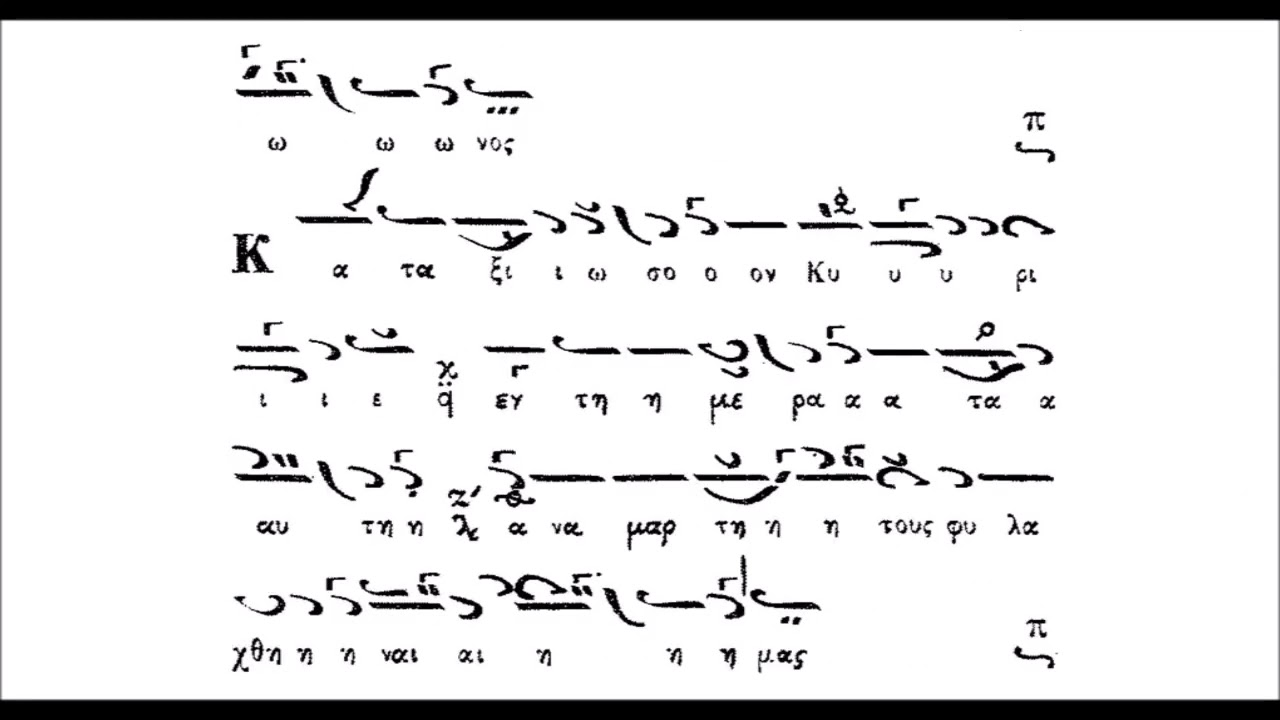 ω ω ω νος π
Κ α τα ξι ι ω σο ο ον Κυ υ υ ρι
ι ι ε χ q̈ εν τη η με ρα α α τα α
αυ τη η ζ' λ α να μαρ τη η η τους φυ λα
χθη η η ναι αι η η η μας π